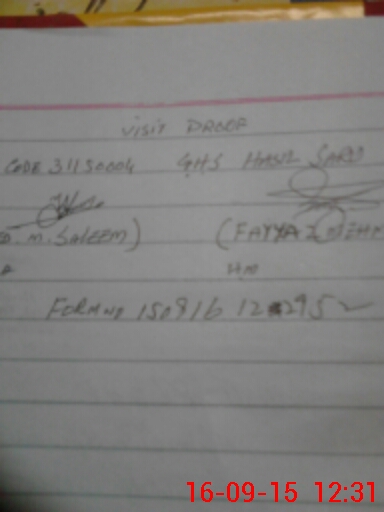 VISIT PROOF
CODE 31150004 GHS HASIL SARU
M. SALEEM) (FAYYAZ
HM
FORM NO 150916 12
16-09-15 12:31